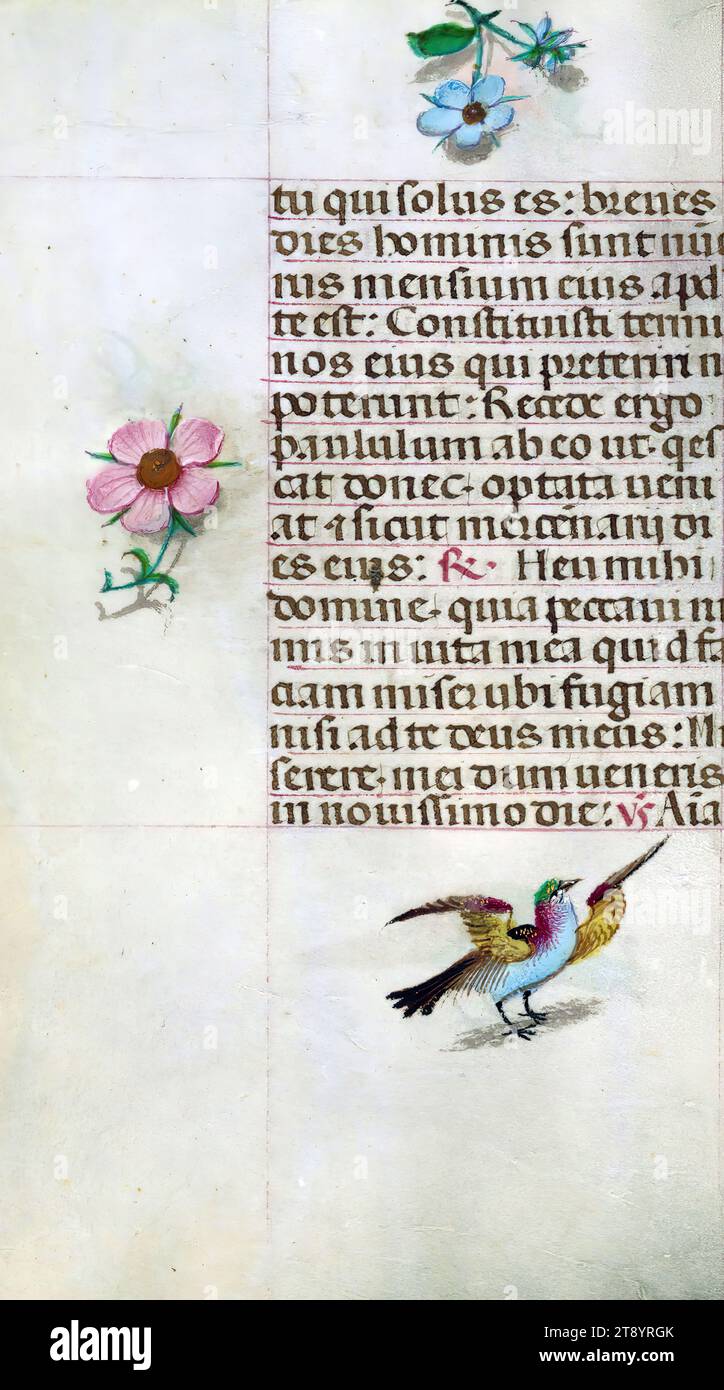 tu qui solus es: breues
dies hominis sunt nũ
rus mensium eius apd
te est: Constituisti termi
nos eius qui preteriri n
poterunt: Recede ergo
paululum ab eo ut qes
cat donec optata ueni
at ⁊ sicut mercenarij di
es eius: ℟. Heu mihi
domine quia peccaui ni
mis in uita mea quid fa
ciam miser ubi fugiam
nisi ad te deus meus: Mi
serere mei dum ueneris
in nouissimo die: ℣ Aia
alamy
alamy
Image ID: 2T8YRGK
www.alamy.com